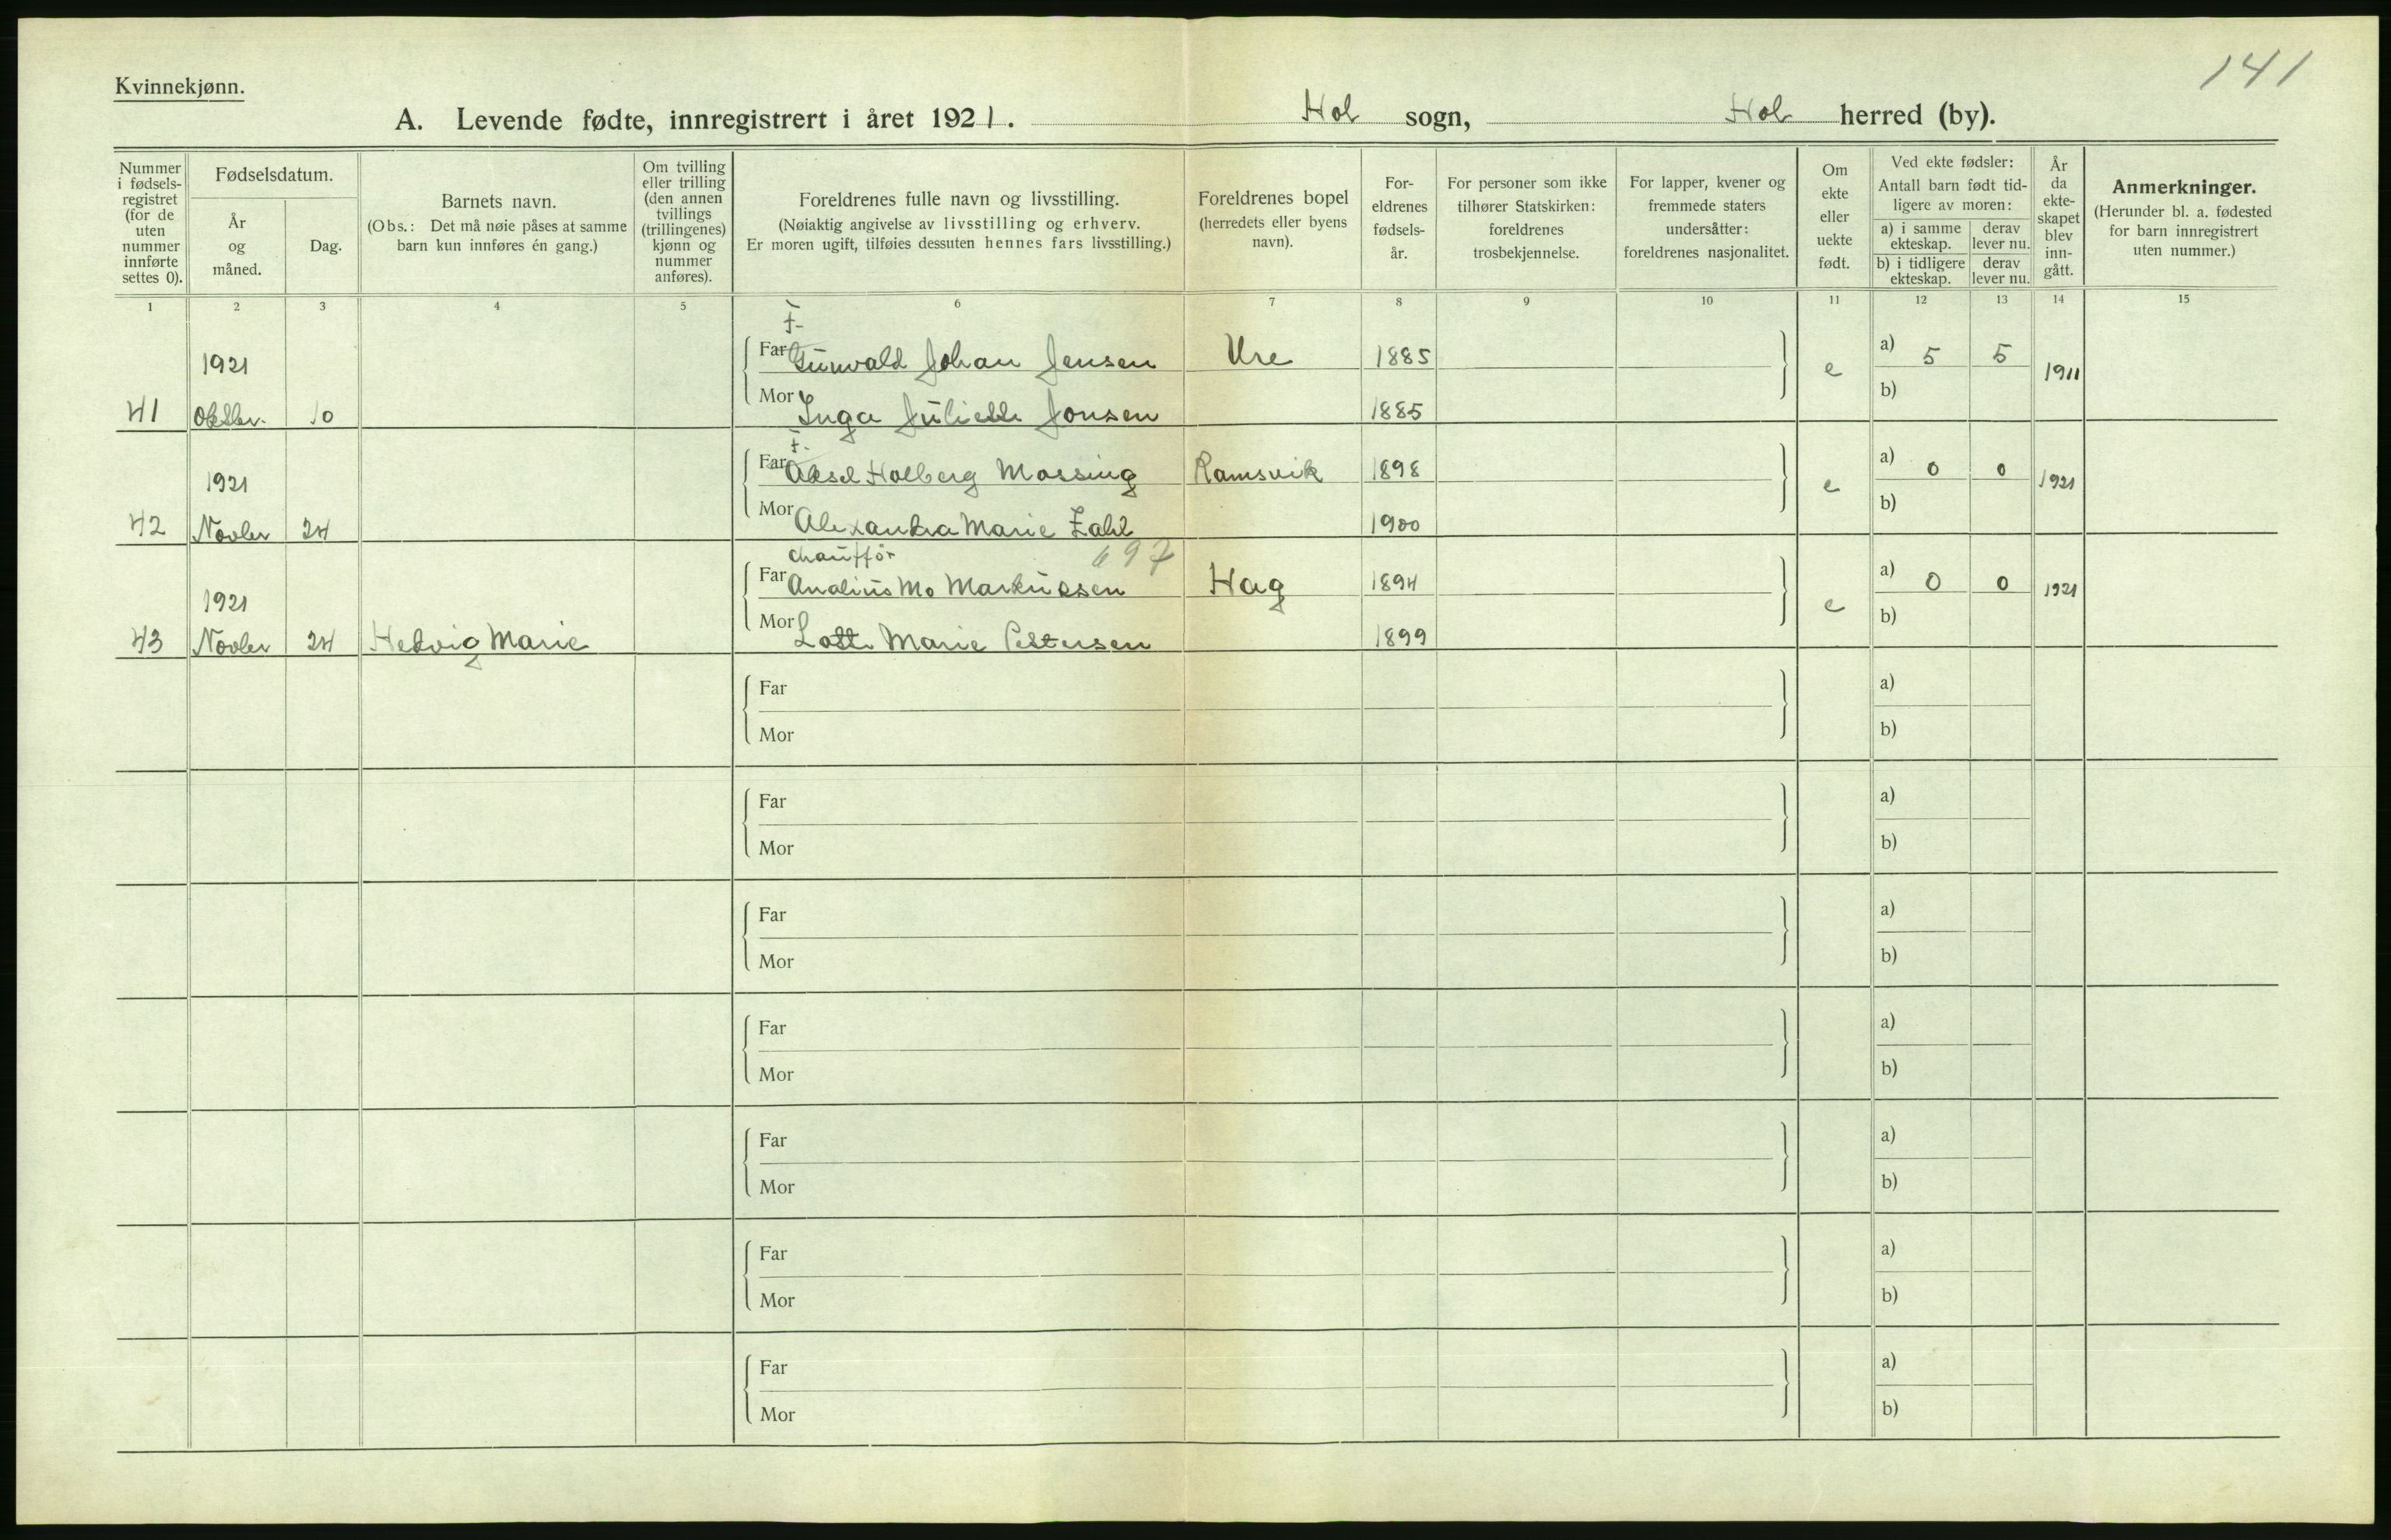 141
Kvinnekjønn.
A. Levende fødte, innregistrert i året 1921. Hol sogn, Hol herred (by).
Nummer i fødsels-registret (for de uten nummer innførte settes 0).
Fødselsdatum.
År og måned.
Dag.
Barnets navn.
(Obs.: Det må nøie påses at samme barn kun innføres én gang.)
Om tvilling eller trilling (den annen tvillings (trillingenes) kjønn og nummer anføres).
Foreldrenes fulle navn og livsstilling.
(Nøiaktig angivelse av livsstilling og erhverv.
Er moren ugift, tilføies dessuten hennes fars livsstilling.)
Foreldrenes bopel (herredets eller byens navn).
For-eldrenes fødsels-år.
For personer som ikke tilhører Statskirken: foreldrenes trosbekjennelse.
For lapper, kvener og fremmede staters undersåtter: foreldrenes nasjonalitet.
Om ekte eller uekte født.
Ved ekte fødsler:
Antall barn født tid-ligere av moren:
a) i samme ekteskap.
derav lever nu.
b) i tidligere ekteskap.
derav lever nu.
År da ekte-skapet blev inn-gått.
Anmerkninger.
(Herunder bl. a. fødested for barn innregistrert uten nummer.)
1 2 3 4 5 6 7 8 9 10 11 12 13 14 15
F-
1921 Far Gunvald Johan Jensen Ure 1885 e a) 5 5 1911
b)
41 Oktbr. 10 Mor Inga Juliette Jonsen 1885
F-
1921 Far Aksel Holberg Mossing Ramsvik 1898 e a) 0 0 1921
b)
42 Novbr 24 Mor Alexandra Marie Zahl 1900
chauffør 697
1921 Far Analius Mo Markussen Hag 1894 e a) 0 0 1921
b)
43 Novbr 24 Hedvig Marie Mor Lotte Marie Pettersen 1899
Far a)
Mor b)
Far a)
Mor b)
Far a)
Mor b)
Far a)
Mor b)
Far a)
Mor b)
Far a)
Mor b)
Far a)
Mor b)